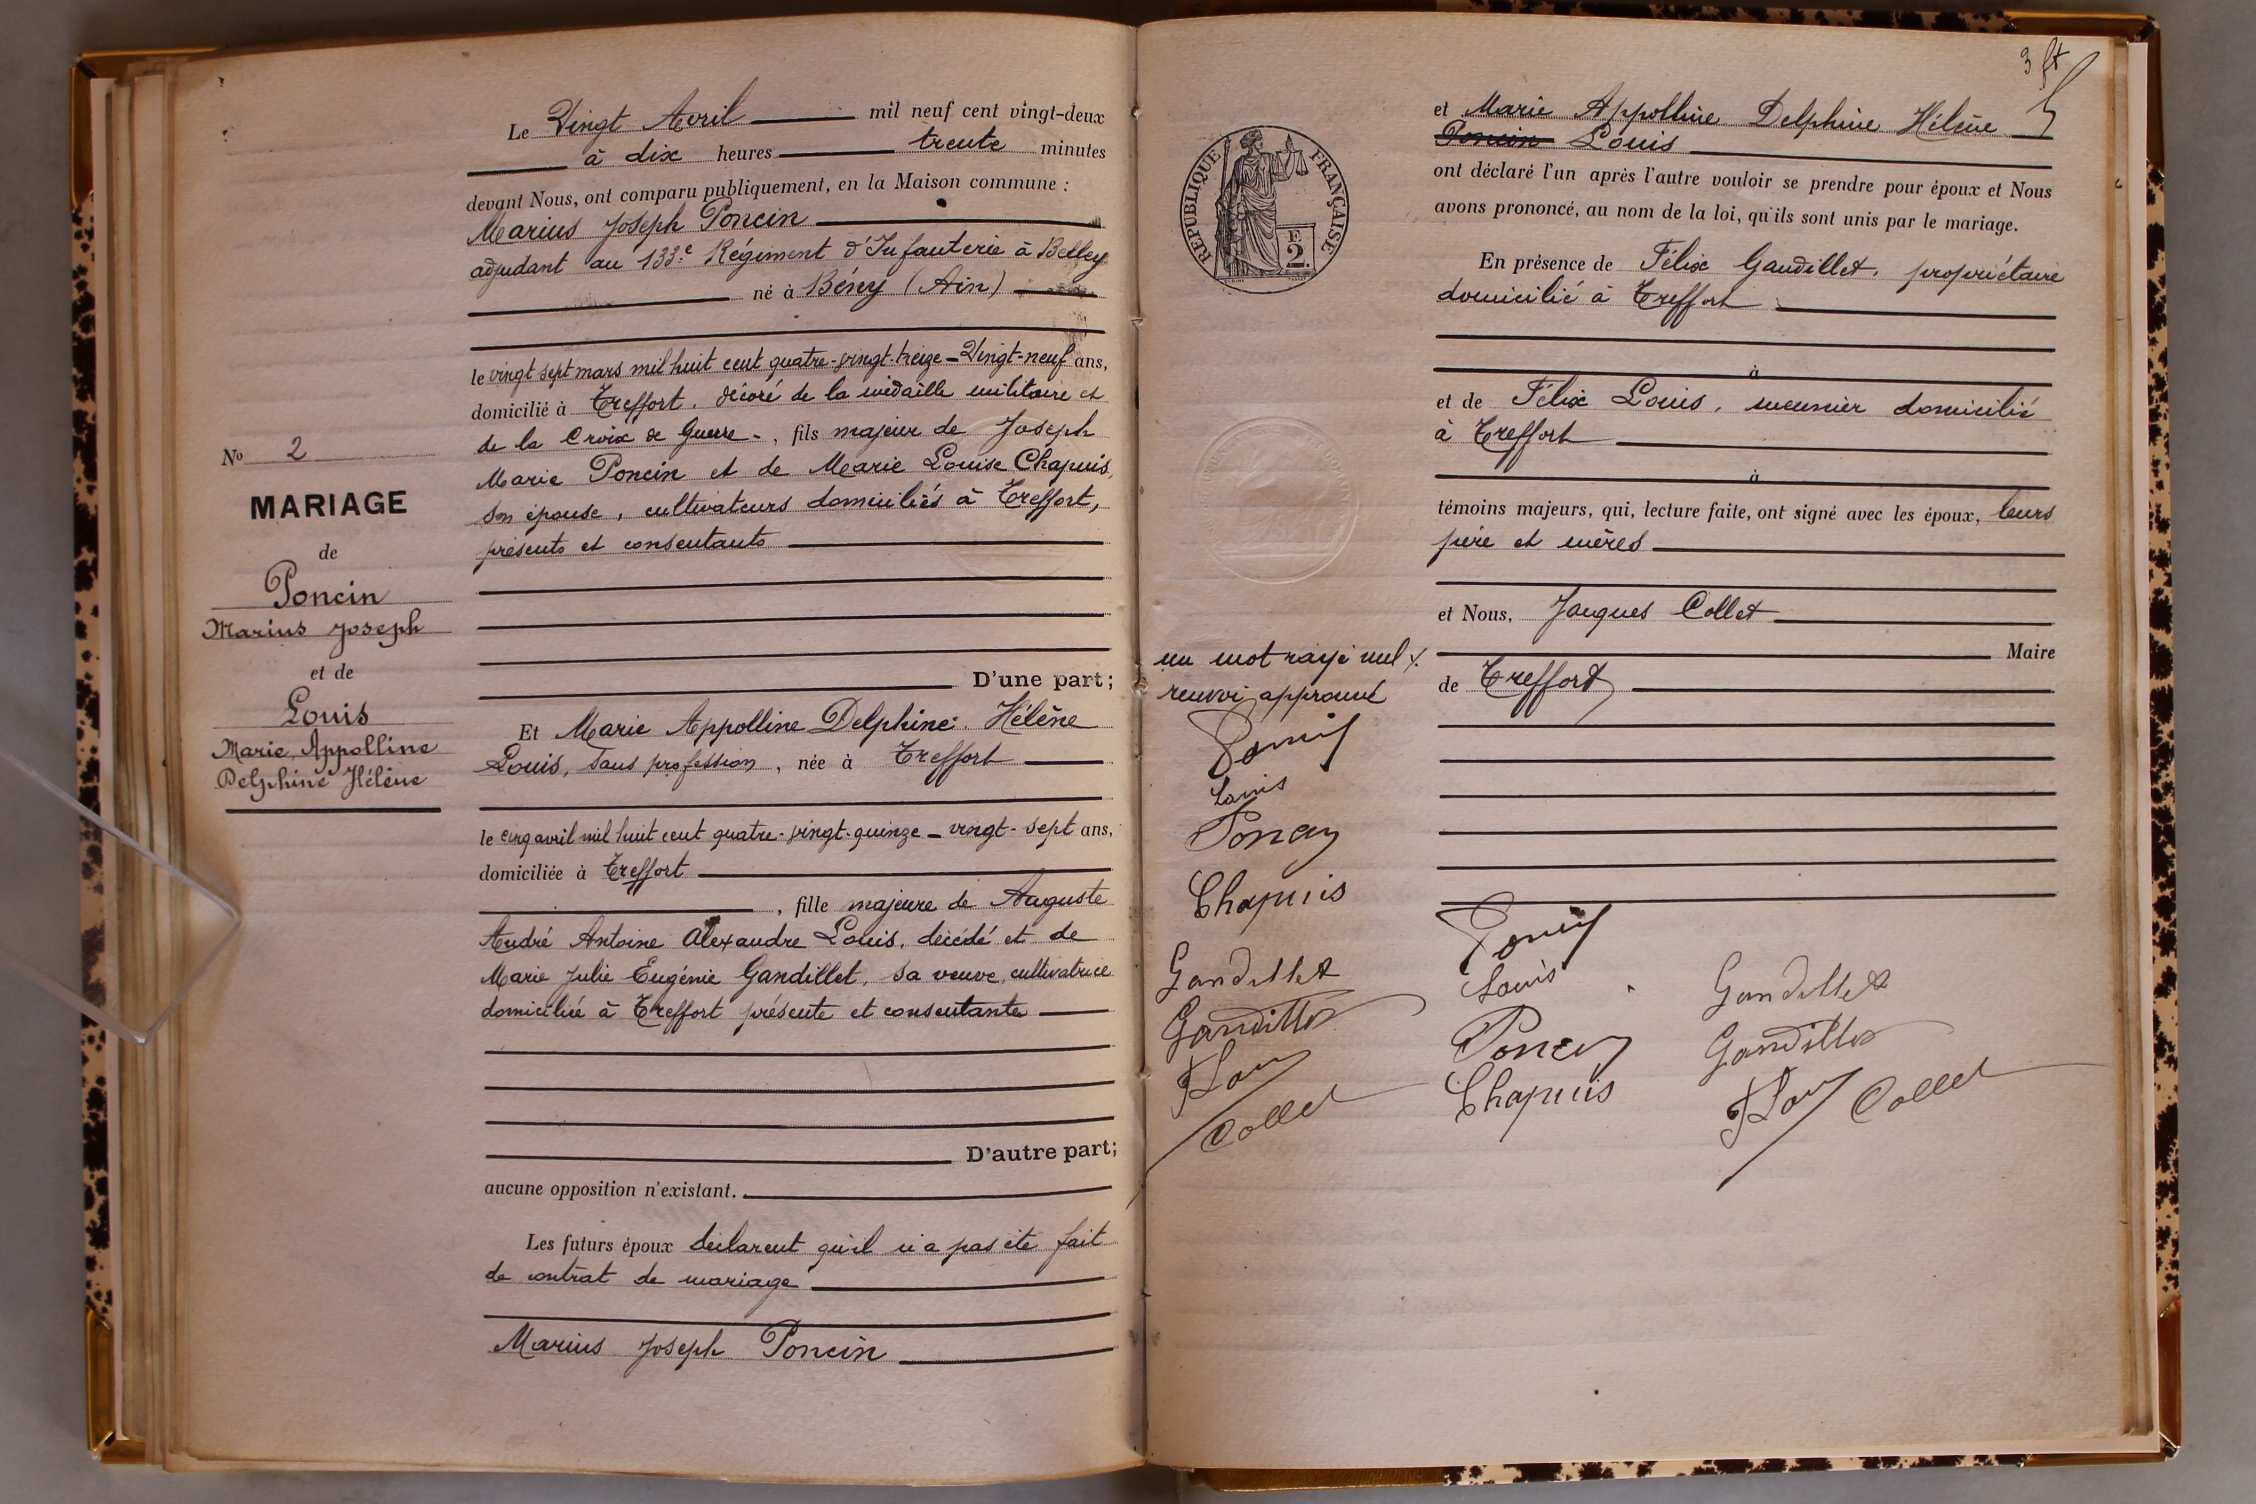 No 2
MARIAGE
de
Poncin
Marius Joseph
et de
Louis
Marie Appolline
Delphine Hélène
Le Vingt Avril mil neuf cent vingt-deux
à dix heures trente minutes
devant Nous, ont comparu publiquement, en la Maison commune :
Marius Joseph Poncin
adjudant au 133e Régiment d'Infanterie à Belley
né à Bény (Ain)
le vingt sept mars mil huit cent quatre-vingt-treize - Vingt-neuf ans,
domicilié à Treffort, décoré de la médaille militaire et
de la Croix de Guerre -, fils majeur de Joseph
Marie Poncin et de Marie Louise Chapuis,
son épouse, cultivateurs domiciliés à Treffort,
présents et consentants
D'une part;
Et Marie Appolline Delphine Hélène
Louis, sans profession, née à Treffort
le cinq avril mil huit cent quatre-vingt-quinze - vingt-sept ans,
domiciliée à Treffort
, fille majeure de Auguste
André Antoine Alexandre Louis, décédé et de
Marie Julie Eugénie Gandillet, sa veuve, cultivatrice
domiciliée à Treffort présente et consentante
D'autre part;
aucune opposition n'existant.
Les futurs époux déclarent qu'il n'a pas été fait
de contrat de mariage
Marius Joseph Poncin
RÉPUBLIQUE FRANÇAISE
E
2
et Marie Appolline Delphine Hélène
Poncin Louis
ont déclaré l'un après l'autre vouloir se prendre pour époux et Nous
avons prononcé, au nom de la loi, qu'ils sont unis par le mariage.
En présence de Félix Gandillet, propriétaire
domicilié à Treffort
à
et de Félix Louis, meunier domicilié
à Treffort
à
témoins majeurs, qui, lecture faite, ont signé avec les époux, leurs
père et mères
et Nous, Jacques Collet
Maire
de Treffort
un mot rayé nul
renvoi approuvé
Poncin
Louis
Poncin
Chapuis
Gandillet
Gandillet
F Louis
Collet
Poncin
Louis
Poncin
Chapuis
Gandillet
Gandillet
F Louis
Collet